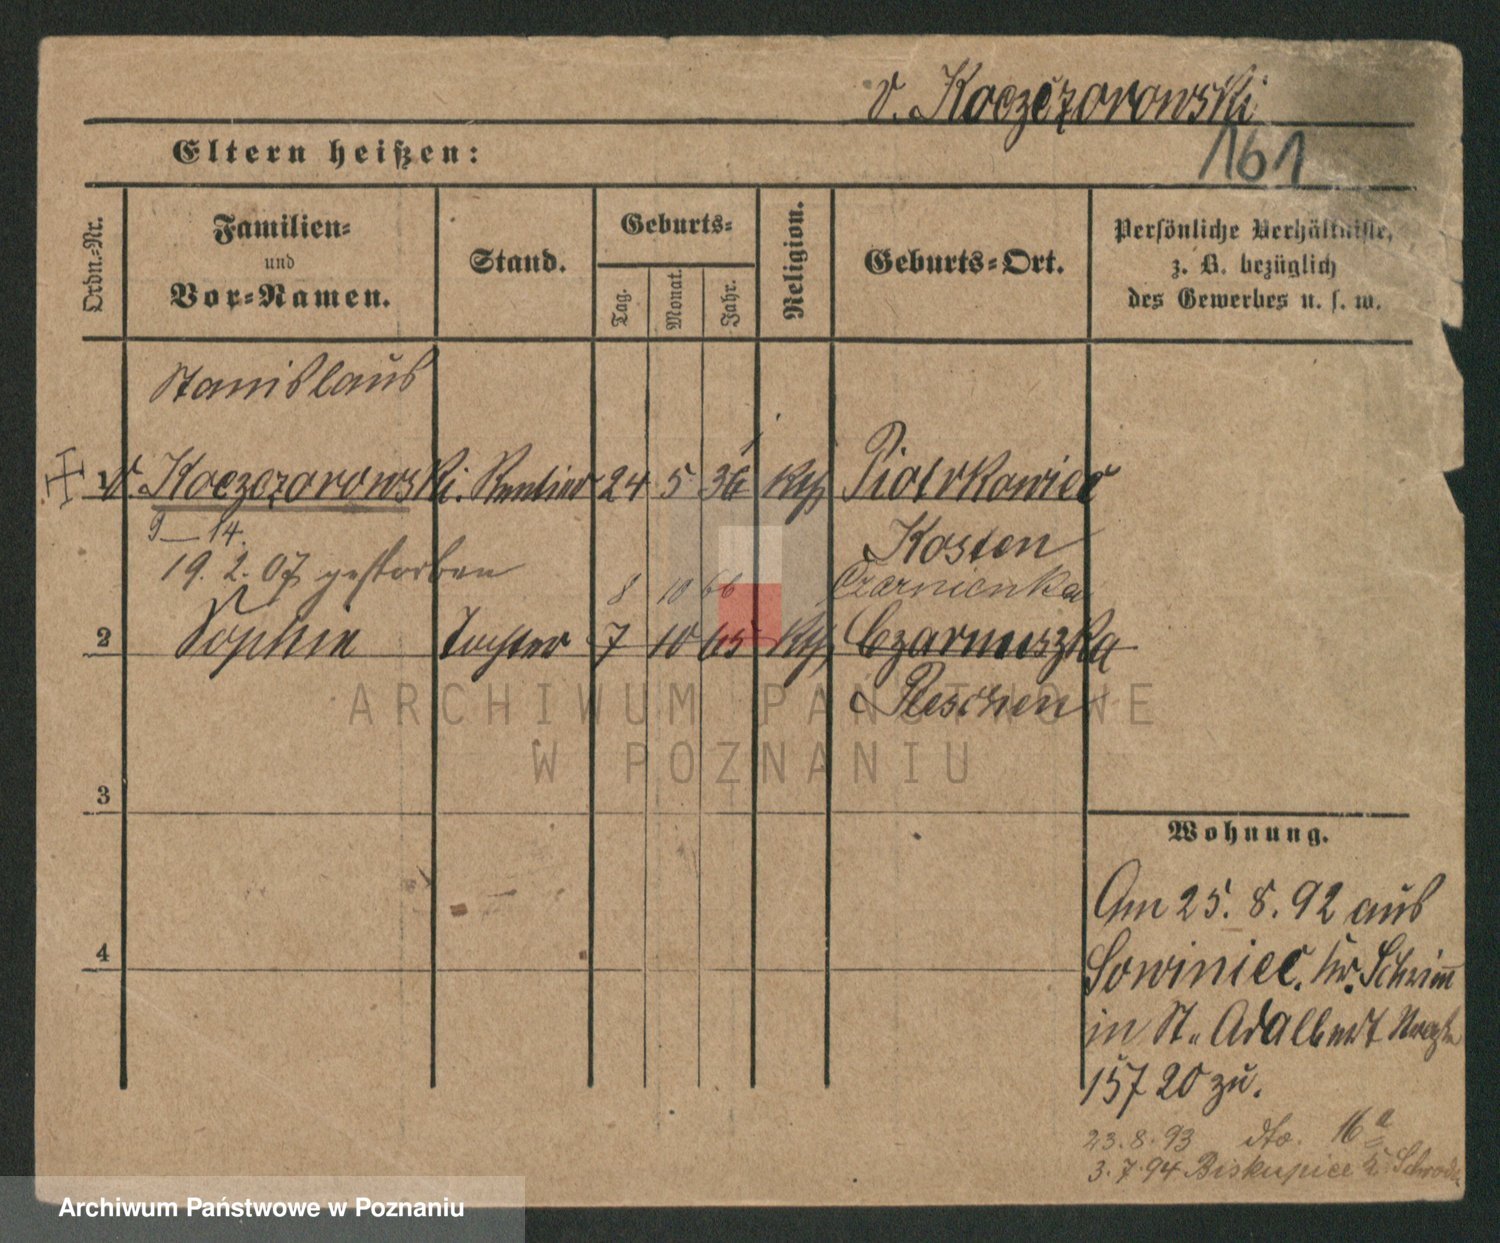 v. Koczorowski
161
Eltern heißen:
Ordn.-Nr.
Familien-
und
Vor-Namen.
Stand.
Geburts-
Tag.
Monat.
Jahr.
Religion.
Geburts-Ort.
Persönliche Verhältnisse,
z. B. bezüglich
des Gewerbes u. s. w.
Stanislaus
1 v. Koczorowski. Rentier 24 5 36 Kth Piotrkowice
9—14.
Kosten
19. 2. 07 gestorben
8 10 66 Czarnienka
2 Sophie Tochter 7 10 65 Kth Czarnuszka
Pleschen
ARCHIWUM PAŃSTWOWE
W POZNANIU
3
Wohnung.
Am 25. 8. 92 aus
4
Sowiniec. Kr. Schrimm
in St. Adalbert
157 20 zu.
23.8.93 dto. 16a
3.7.94 Biskupice Schroda
Archiwum Państwowe w Poznaniu